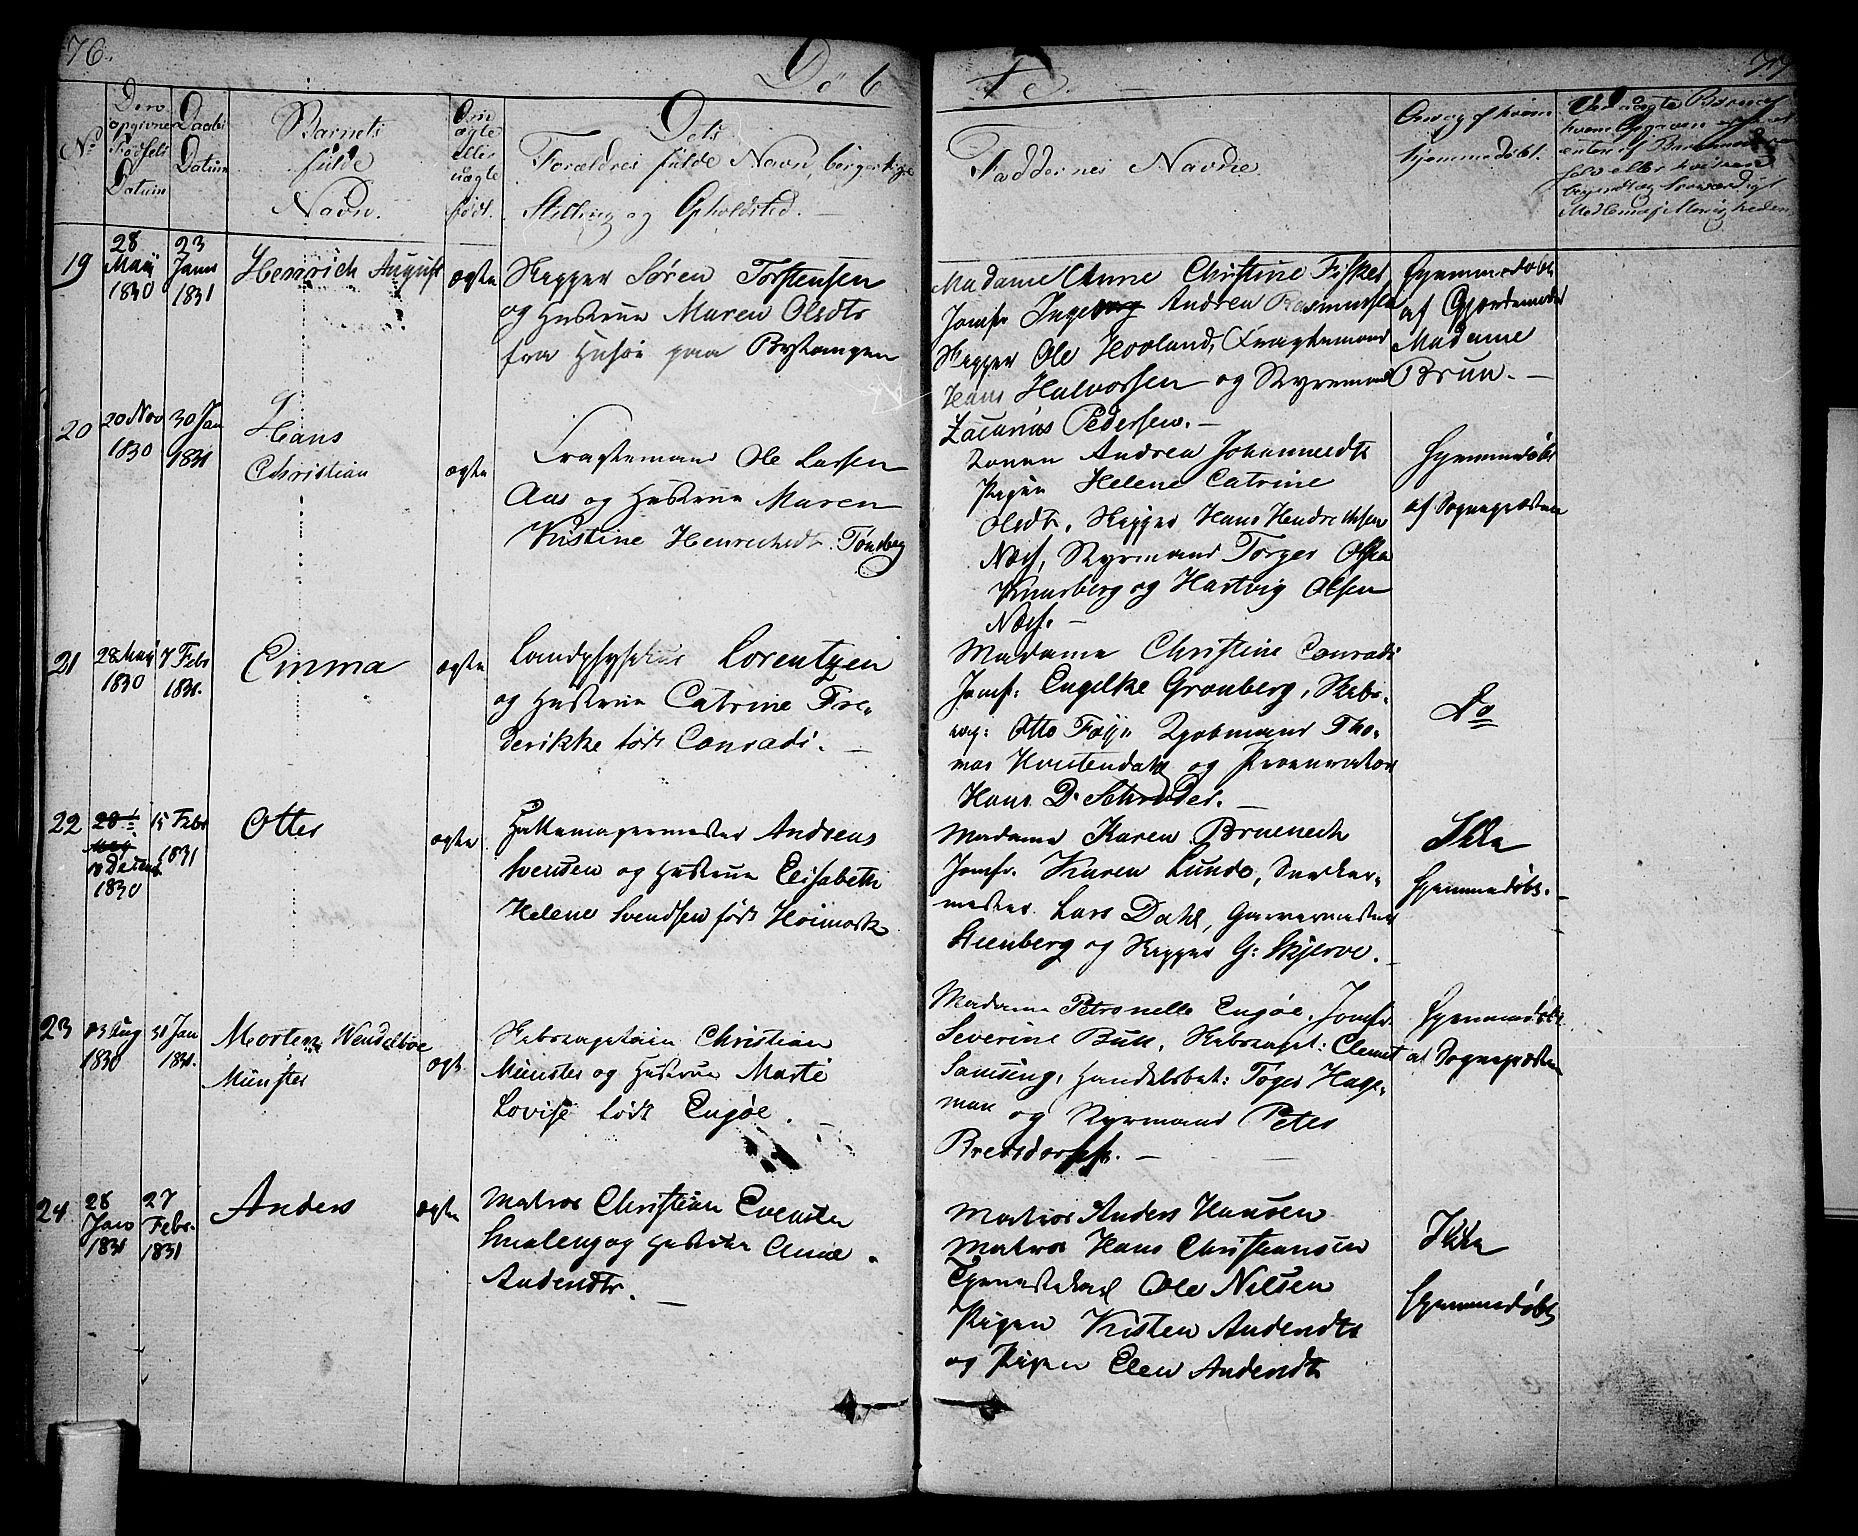 76.
Døb
te.
77
No
Dens
opgivne
Fødsels
Datum
Daabs
Datum
Barnets
fulde
Navn.
Om
ægte
eller
uægte
født.
Dets
Forældres fulde Navn, borgerlige
Stilling og Opholdsted.
Faddernes Navne.
Om og af hvem
hjemmedøbt.
19
28
Maii
1830
23
Janr
1831
Henrich August
ægte
Skipper Søren Torstensen
og Hustrue Maren Olsdtr
fra Husøe paa
Madame Anne Christine Fisker
Jomfr Ingeborg Andrea Rasmussen
Skipper Ole Hovland, Fragtemand
Hans Halvorsen og Styrmand
Zacarias Pedersen. —
Hjemmedøbt
af Gjordemoder
Madame
Brun. —
20
20 Nov
1830
30 Jan
1831
Hans
Christian
ægte
Fragtemand Ole Larsen
Aas og Hustrue Maren
Kristine Henrichsdtr. Tønsberg
Konen Andrea Johannesdtr
Pigen Helene Catrine
Olsdtr, Skipper Hans Hendrichsen
Næss, Styrmand Torger Olsen
Knarberg og Hartvig Olsen
Næss. —
Hjemmedøbt
af Sognepræsten
21
28 Maii
1830
7 Febr
1831.
Emma
ægte
Landphysikus Lorentzen
og Hustrue Catrine Fre-
derikke født Conradi. —
Madame Christine Conradi
Jomf: Engelke Grønberg, Skibs-
cap: Otto Føyn Kjøbmand Tho-
mas Hvistendahl og Procurator
Hans D. Schrøder. —
Do
22
28
May
10 Decemb
1830
15 Febr
1831
Otter
ægte
Hattemagermester Andreas
Svensen og Hustrue Elisabeth
Helene Svendsen født Høimork
Madame Karen Bruenech
Jomfr. Karen Lunde, Snedker-
mester Lars Dahl, Garvermester
Steenberg og Skipper G: Skjerve. —
Ikke
Hjemmedøbt. —
23
03 Aug
1830
31 Jan
1831.
Morten Wendelboe
Münster
ægt.
Skibscapitain Christian
Münster og Hustrue Marte
Lovise født Engøe. —
Madame Petronelle Engøe, Jomfr.
Severine Bull, Skibscapt: Clemet
Samsing, Handelsbet: Toger Hage-
man og Styrmand Peter
Bretsdorff. —
Hjemmedøbt
af Sognepræsten
24.
28
Janr
1831
27
Febr.
1831
Anders
ægte
Matros Christian Evensen
Smaleng og Hustrue Anne
Andersdtr. —
Matros Anders Hansen
Matros Hans Christiansen
Tjenestekarl Ole Nilsen
Pigen Kristen Andersdtr
og Pigen Elen Andersdtr
Ikke
Hjemmedøbt